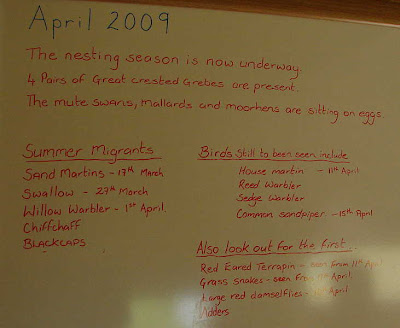 April 2009
The nesting season is now underway.
4 Pairs of Great crested Grebes are present.
The mute swans, mallards and moorhens are sitting on eggs.
Summer Migrants
Sand Martins - 17th March
Swallow - 27th March
Willow Warbler - 1st April.
Chiffchaff
Blackcaps
Birds still to been seen include
House martin - 11th April
Reed Warbler
Sedge Warbler
Common sandpiper - 15th April
Also look out for the first...
Red Eared Terrapin - seen from 11th April
Grass snakes - seen from April
Large red damselflies - April
Adders